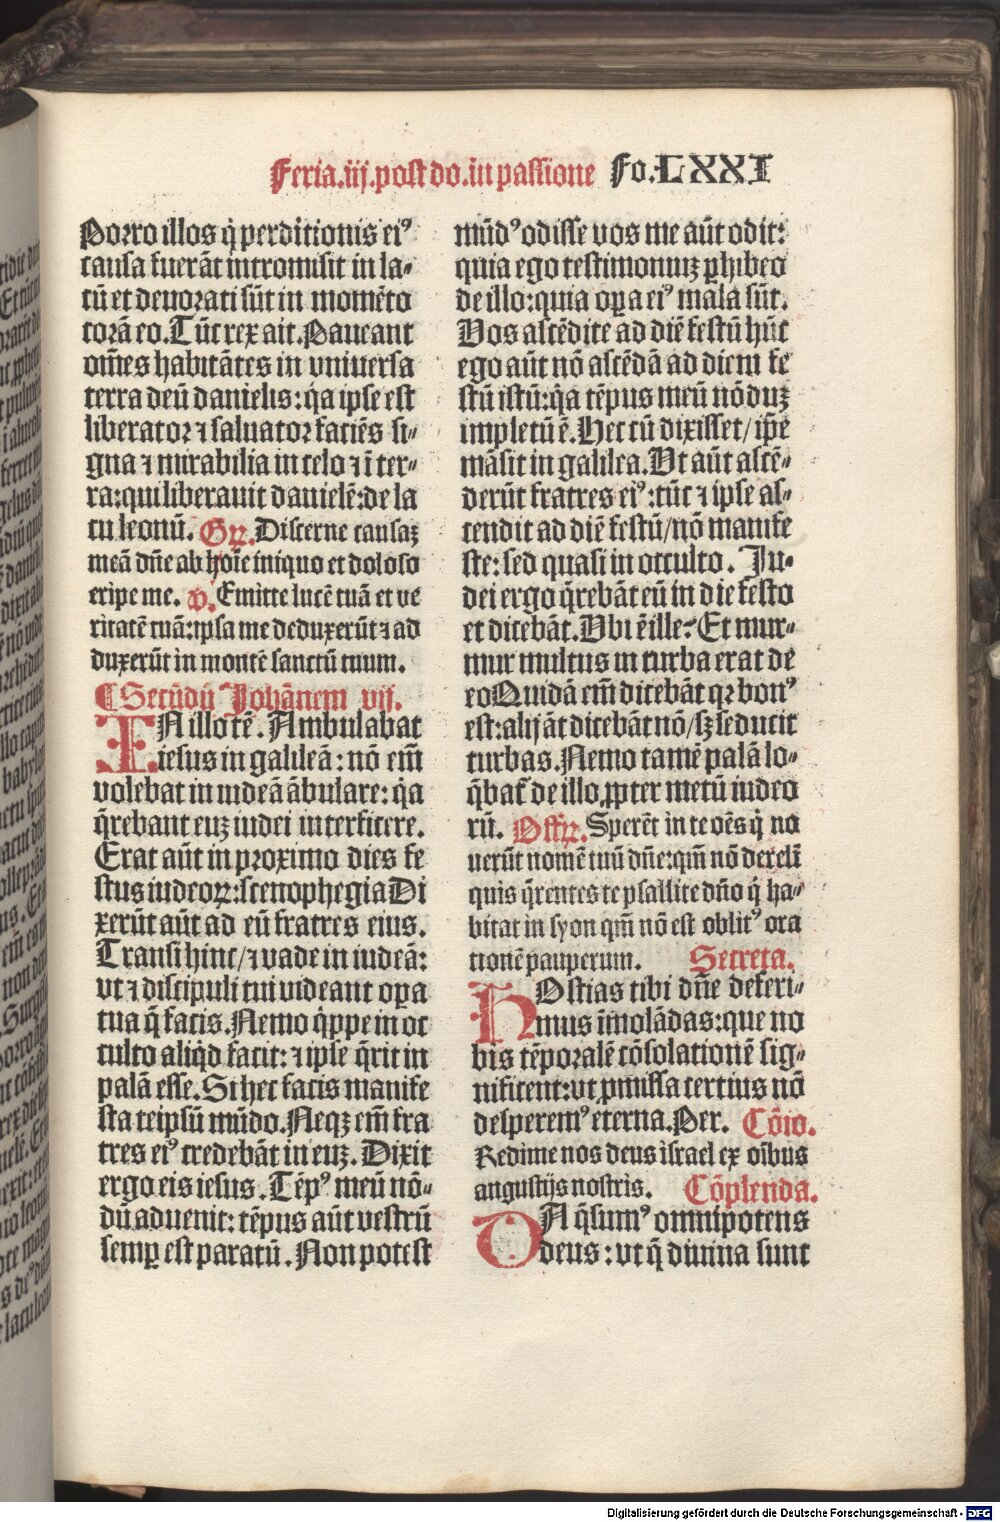 Feria.iij.post do.in passione Fo.LXXI
Porro illos q̇ perditionis eiꝰ
causa fuerāt intromisit in la-
cū et deuorati sūt in momēto
corā eo. Tūc rex ait. Paueant
om̄es habitātes in vniuersa
terra deū danielis: q̇a ipse est
liberator ⁊ saluator faciēs si-
gna ⁊ mirabilia in celo ⁊ ī ter-
ra: qui liberauit danielē: de la
cu leonū. Gꝛ. Discerne causaꝫ
meā dn̄e ab hoīe iniquo et doloso
eripe me. v. Emitte lucē tuā et ve
ritatē tuā: ipsa me deduxerūt ⁊ ad
duxerūt in montē sanctū tuum.
¶ Secūdū Johānem vij.
IN illo tē. Ambulabat
iesus in galileā: nō em̄
volebat in iudeā ābulare: q̇a
q̄rebant euꝫ iudei interficere.
Erat aūt in proximo dies fe
stus iudeoꝝ: scenophegia Di
xerūt aūt ad eū fratres eius.
Transi hinc/ ⁊ vade in iudeā:
vt ⁊ discipuli tui videant oꝑa
tua q̄ facis. Nemo q̇ppe in oc
culto aliq̇d facit: ⁊ ipse q̄rit in
palā esse. Si hec facis manife
sta teipsū mūdo. Neqꝫ em̄ fra
tres eiꝰ credebāt in euꝫ. Dixit
ergo eis iesus. Tēpꝰ meū nō-
dū aduenit: tēpus aūt vestrū
semꝑ est paratū. Non potest
mūdꝰ odisse vos me aūt odit:
quia ego testimoniuꝫ ꝑhibeo
de illo: quia oꝑa eiꝰ mala sūt.
Vos ascēdite ad diē festū hūc
ego aūt nō ascēdā ad diem fe
stū istū: q̇a tēpus meū nōduꝫ
impletū ē. Hec cū dixisset/ ip̄e
māsit in galilea. Vt aūt ascē-
derūt fratres eiꝰ: tūc ⁊ ipse as-
cendit ad diē festū/ nō manife
ste: sed quasi in occulto. Iu-
dei ergo q̄rebāt eū in die festo
et dicebāt. Vbi ē ille? Et mur-
mur multus in turba erat de
eo Quidā em̄ dicebāt qꝛ bonꝰ
est: alij āt dicebāt nō/ sꝫ seducit
turbas. Nemo tamē palā lo-
q̄bat̄ de illo ꝓpter metū iudeo
rū. Offꝛ. Sperēt in te oēs q̇ no
uerūt nomē tuū dn̄e: qm̄ nō dereli
quis q̄rentes te psallite dn̄o q̇ ha-
bitat in syon qm̄ nō est oblitꝰ ora
tionē pauperum. Secreta.
HOstias tibi dn̄e deferi-
mus īmolādas: que no
bis tēporalē cōsolationē sig-
nificent: vt ꝓmissa certius nō
desperemꝰ eterna. Per. Cōio.
Redime nos deus israel ex oībus
angustijs nostris. Cōplenda.
DA q̄sumꝰ omnipotens
deus: vt q̄ diuina sunt
Digitalisierung gefördert durch die Deutsche Forschungsgemeinschaft - DFG